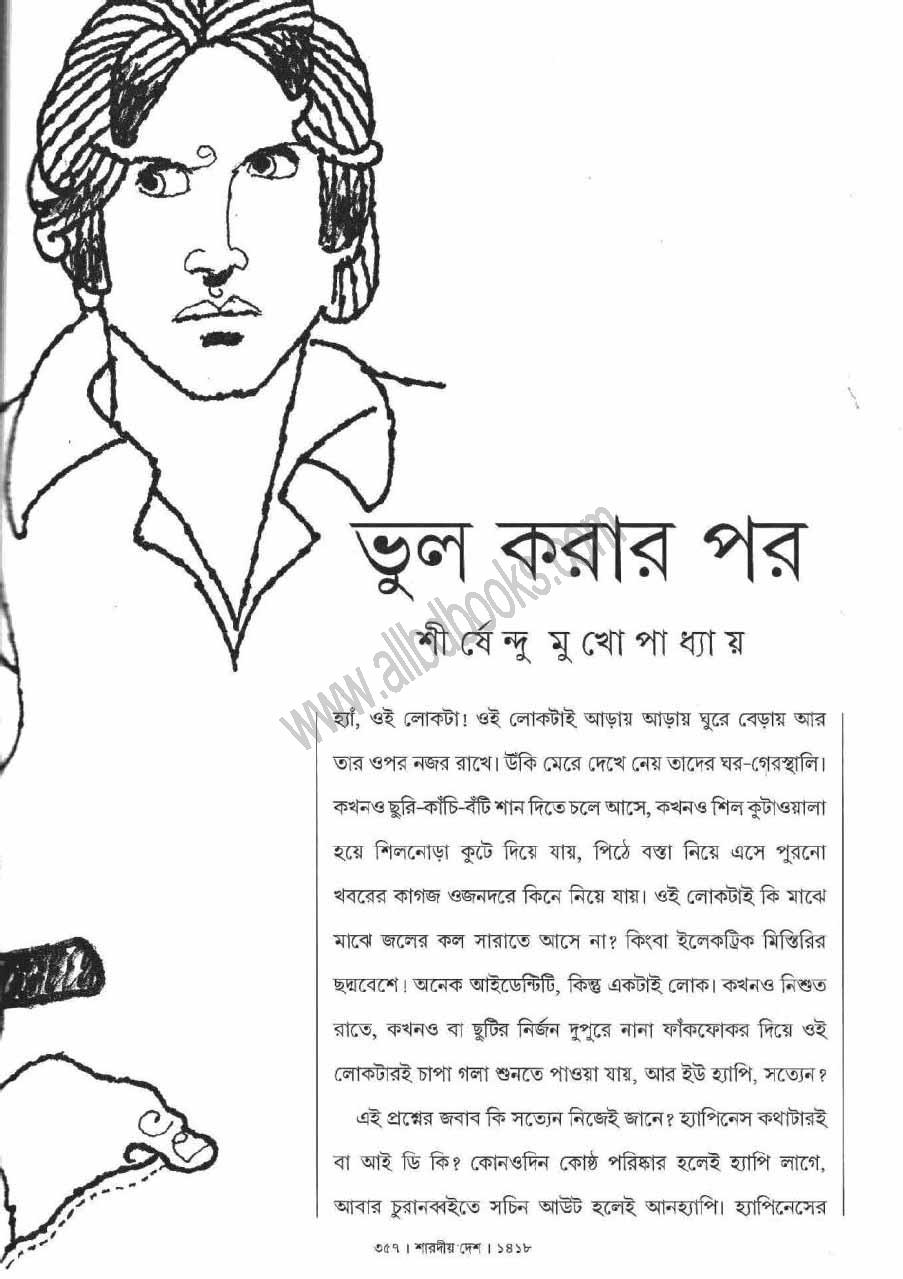 ভুল করার পর
শীর্ষেন্দু মুখোপাধ্যায়
www.allbdbooks.com
হ্যাঁ, ওই লোকটা! ওই লোকটাই আড়ায় আড়ায় ঘুরে বেড়ায় আর
তার ওপর নজর রাখে। উঁকি মেরে দেখে নেয় তাদের ঘর-গেরস্থালি।
কখনও ছুরি-কাঁচি-বঁটি শান দিতে চলে আসে, কখনও শিল কুটাওয়ালা
হয়ে শিলনোড়া কুটে দিয়ে যায়, পিঠে বস্তা নিয়ে এসে পুরনো
খবরের কাগজ ওজনদরে কিনে নিয়ে যায়। ওই লোকটাই কি মাঝে
মাঝে জলের কল সারাতে আসে না? কিংবা ইলেকট্রিক মিস্তিরির
ছদ্মবেশে! অনেক আইডেন্টিটি, কিন্তু একটাই লোক। কখনও নিশুত
রাতে, কখনও বা ছুটির নির্জন দুপুরে নানা ফাঁকফোকর দিয়ে ওই
লোকটারই চাপা গলা শুনতে পাওয়া যায়, আর ইউ হ্যাপি, সত্যেন?
এই প্রশ্নের জবাব কি সত্যেন নিজেই জানে? হ্যাপিনেস কথাটারই
বা আই ডি কি? কোনওদিন কোষ্ঠ পরিষ্কার হলেই হ্যাপি লাগে,
আবার চুরানব্বইতে সচিন আউট হলেই আনহ্যাপি। হ্যাপিনেসের
৩৫৭ । শারদীয় দেশ । ১৪১৮